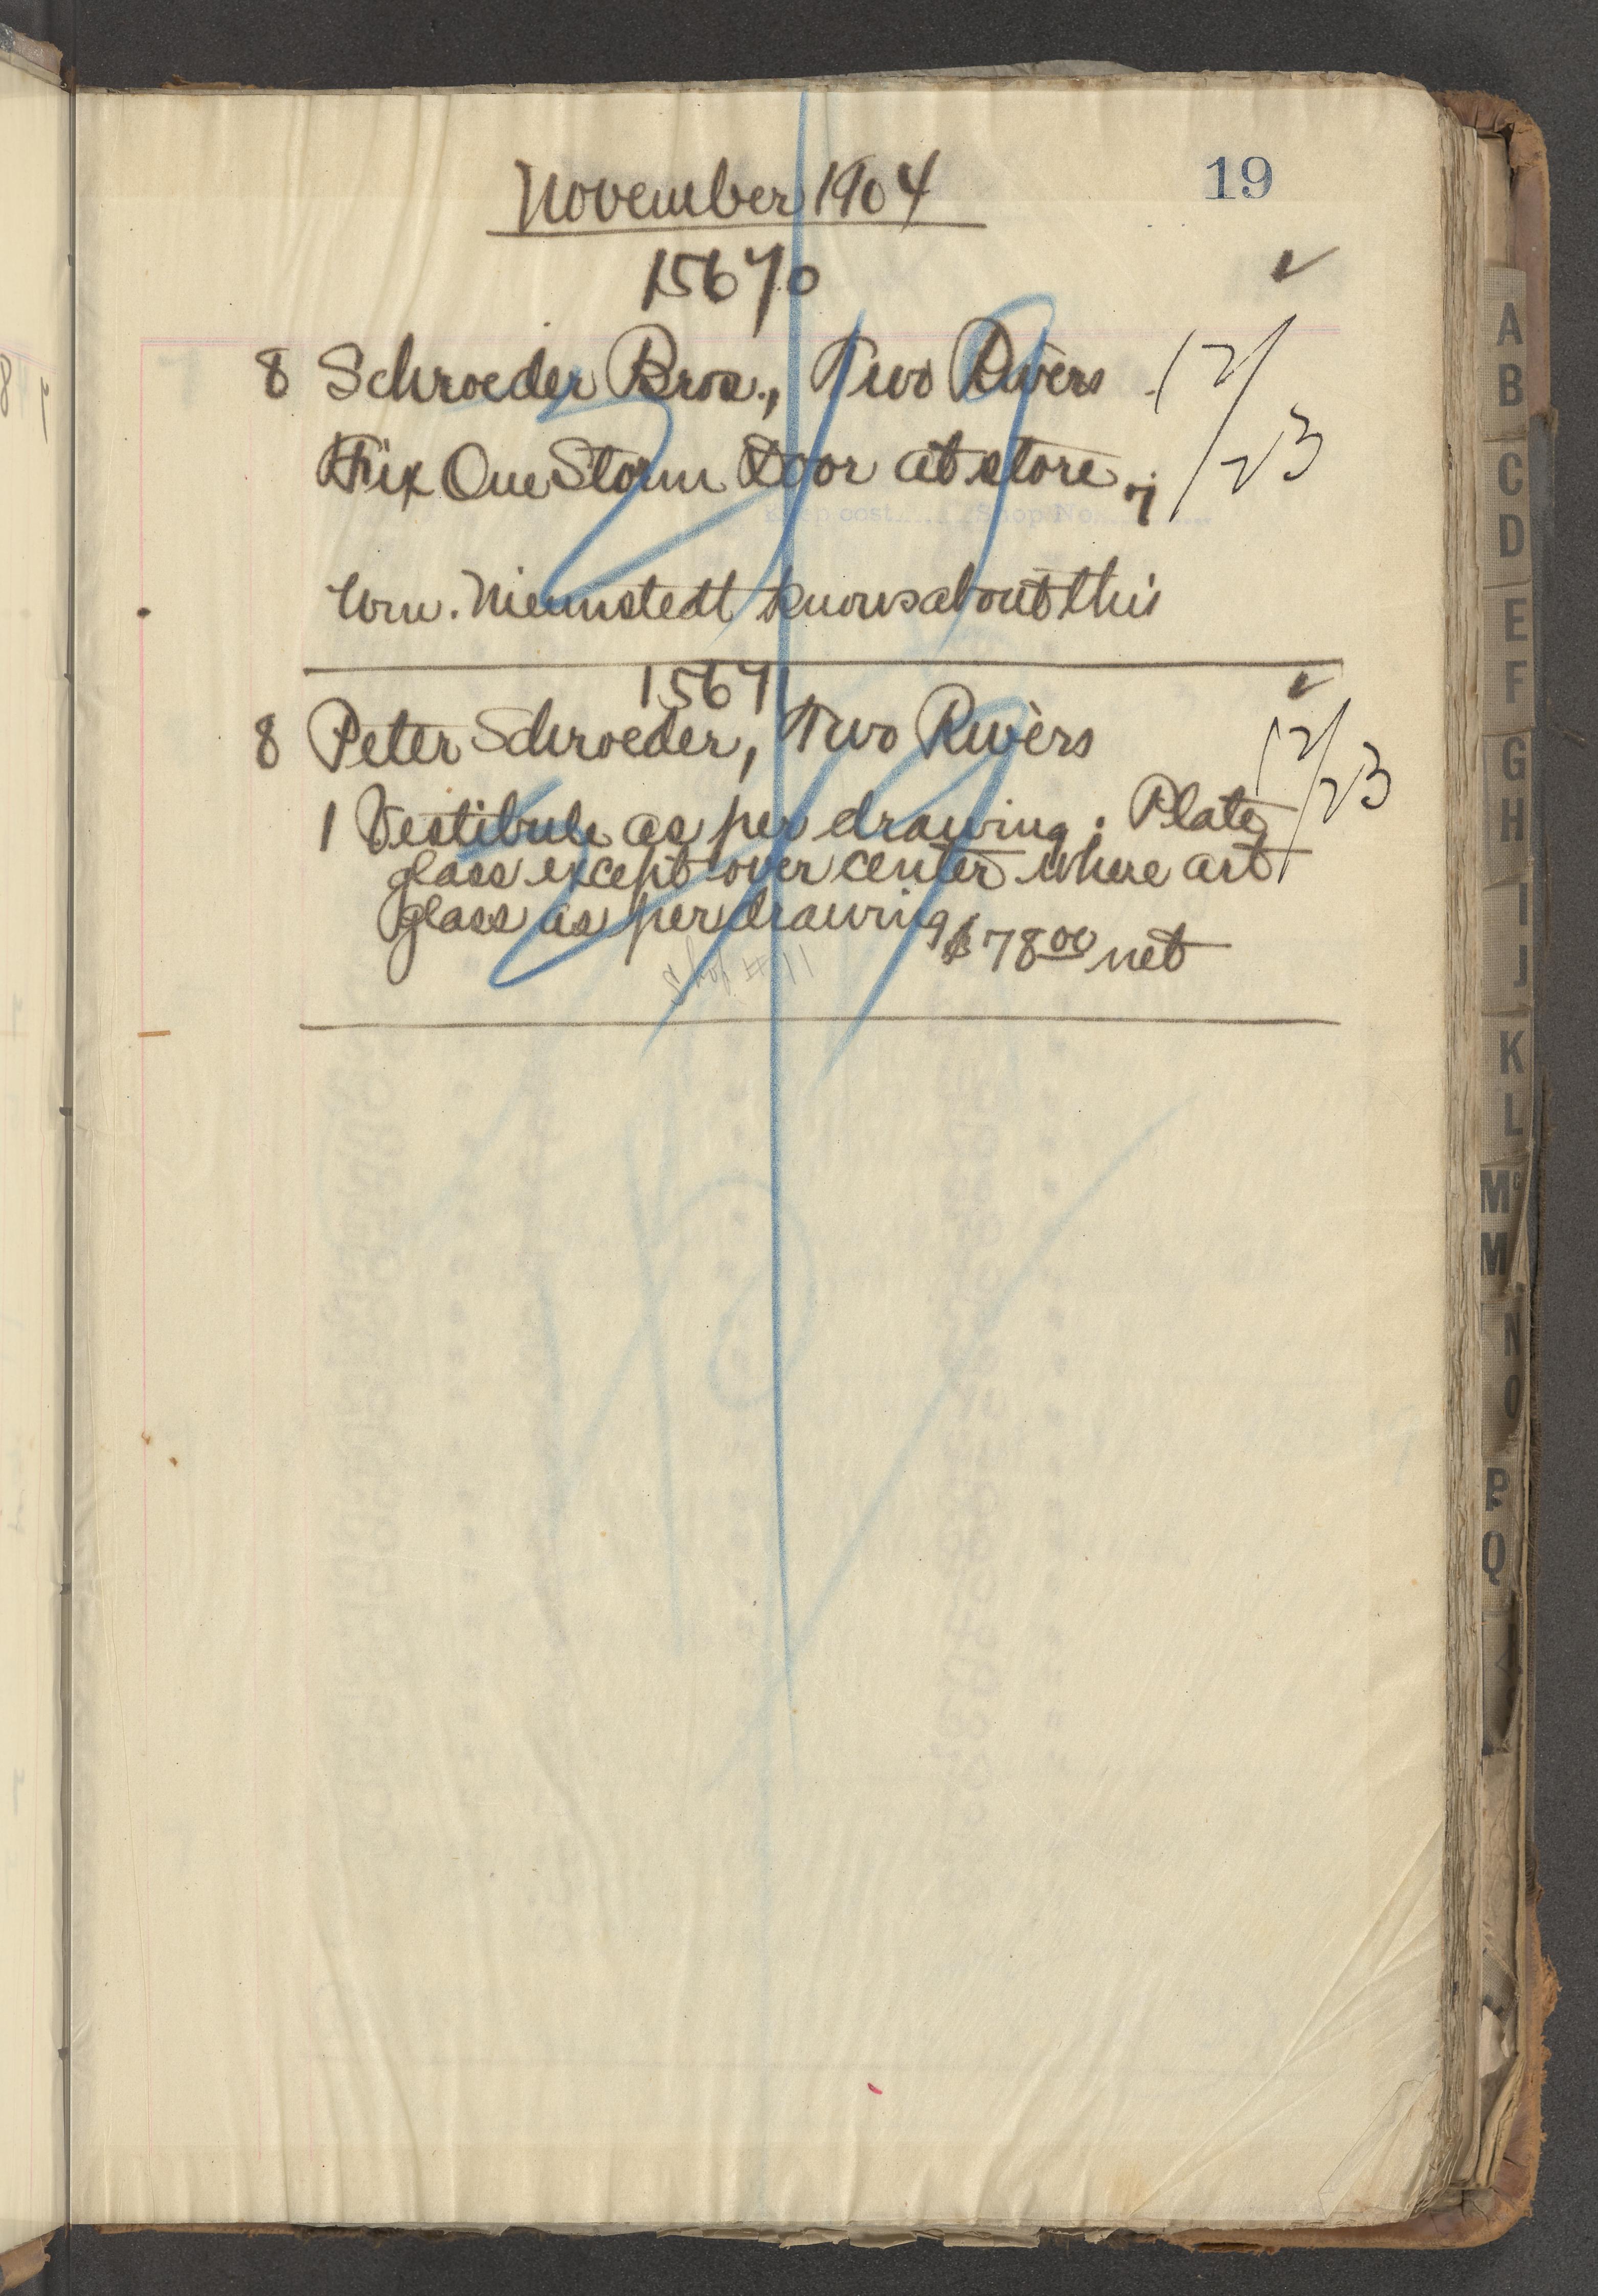 19
November 1904
15670
✓
8 Schroeder Bros., Two Rivers
12/23
Fix One Storm Door at store.
Shop cost....... Shop No.............
Wm. Niemstedt knows about this
15671
✓
8 Peter Schroeder, Two Rivers
12/23
1 Vestibule as per drawing. Plate
glass except over center where art
glass as per drawing
$78.00 net
Shop # 11
A
B
C
D
E
F
G
H
I
J
K
L
Mc
M
N
O
P
Q